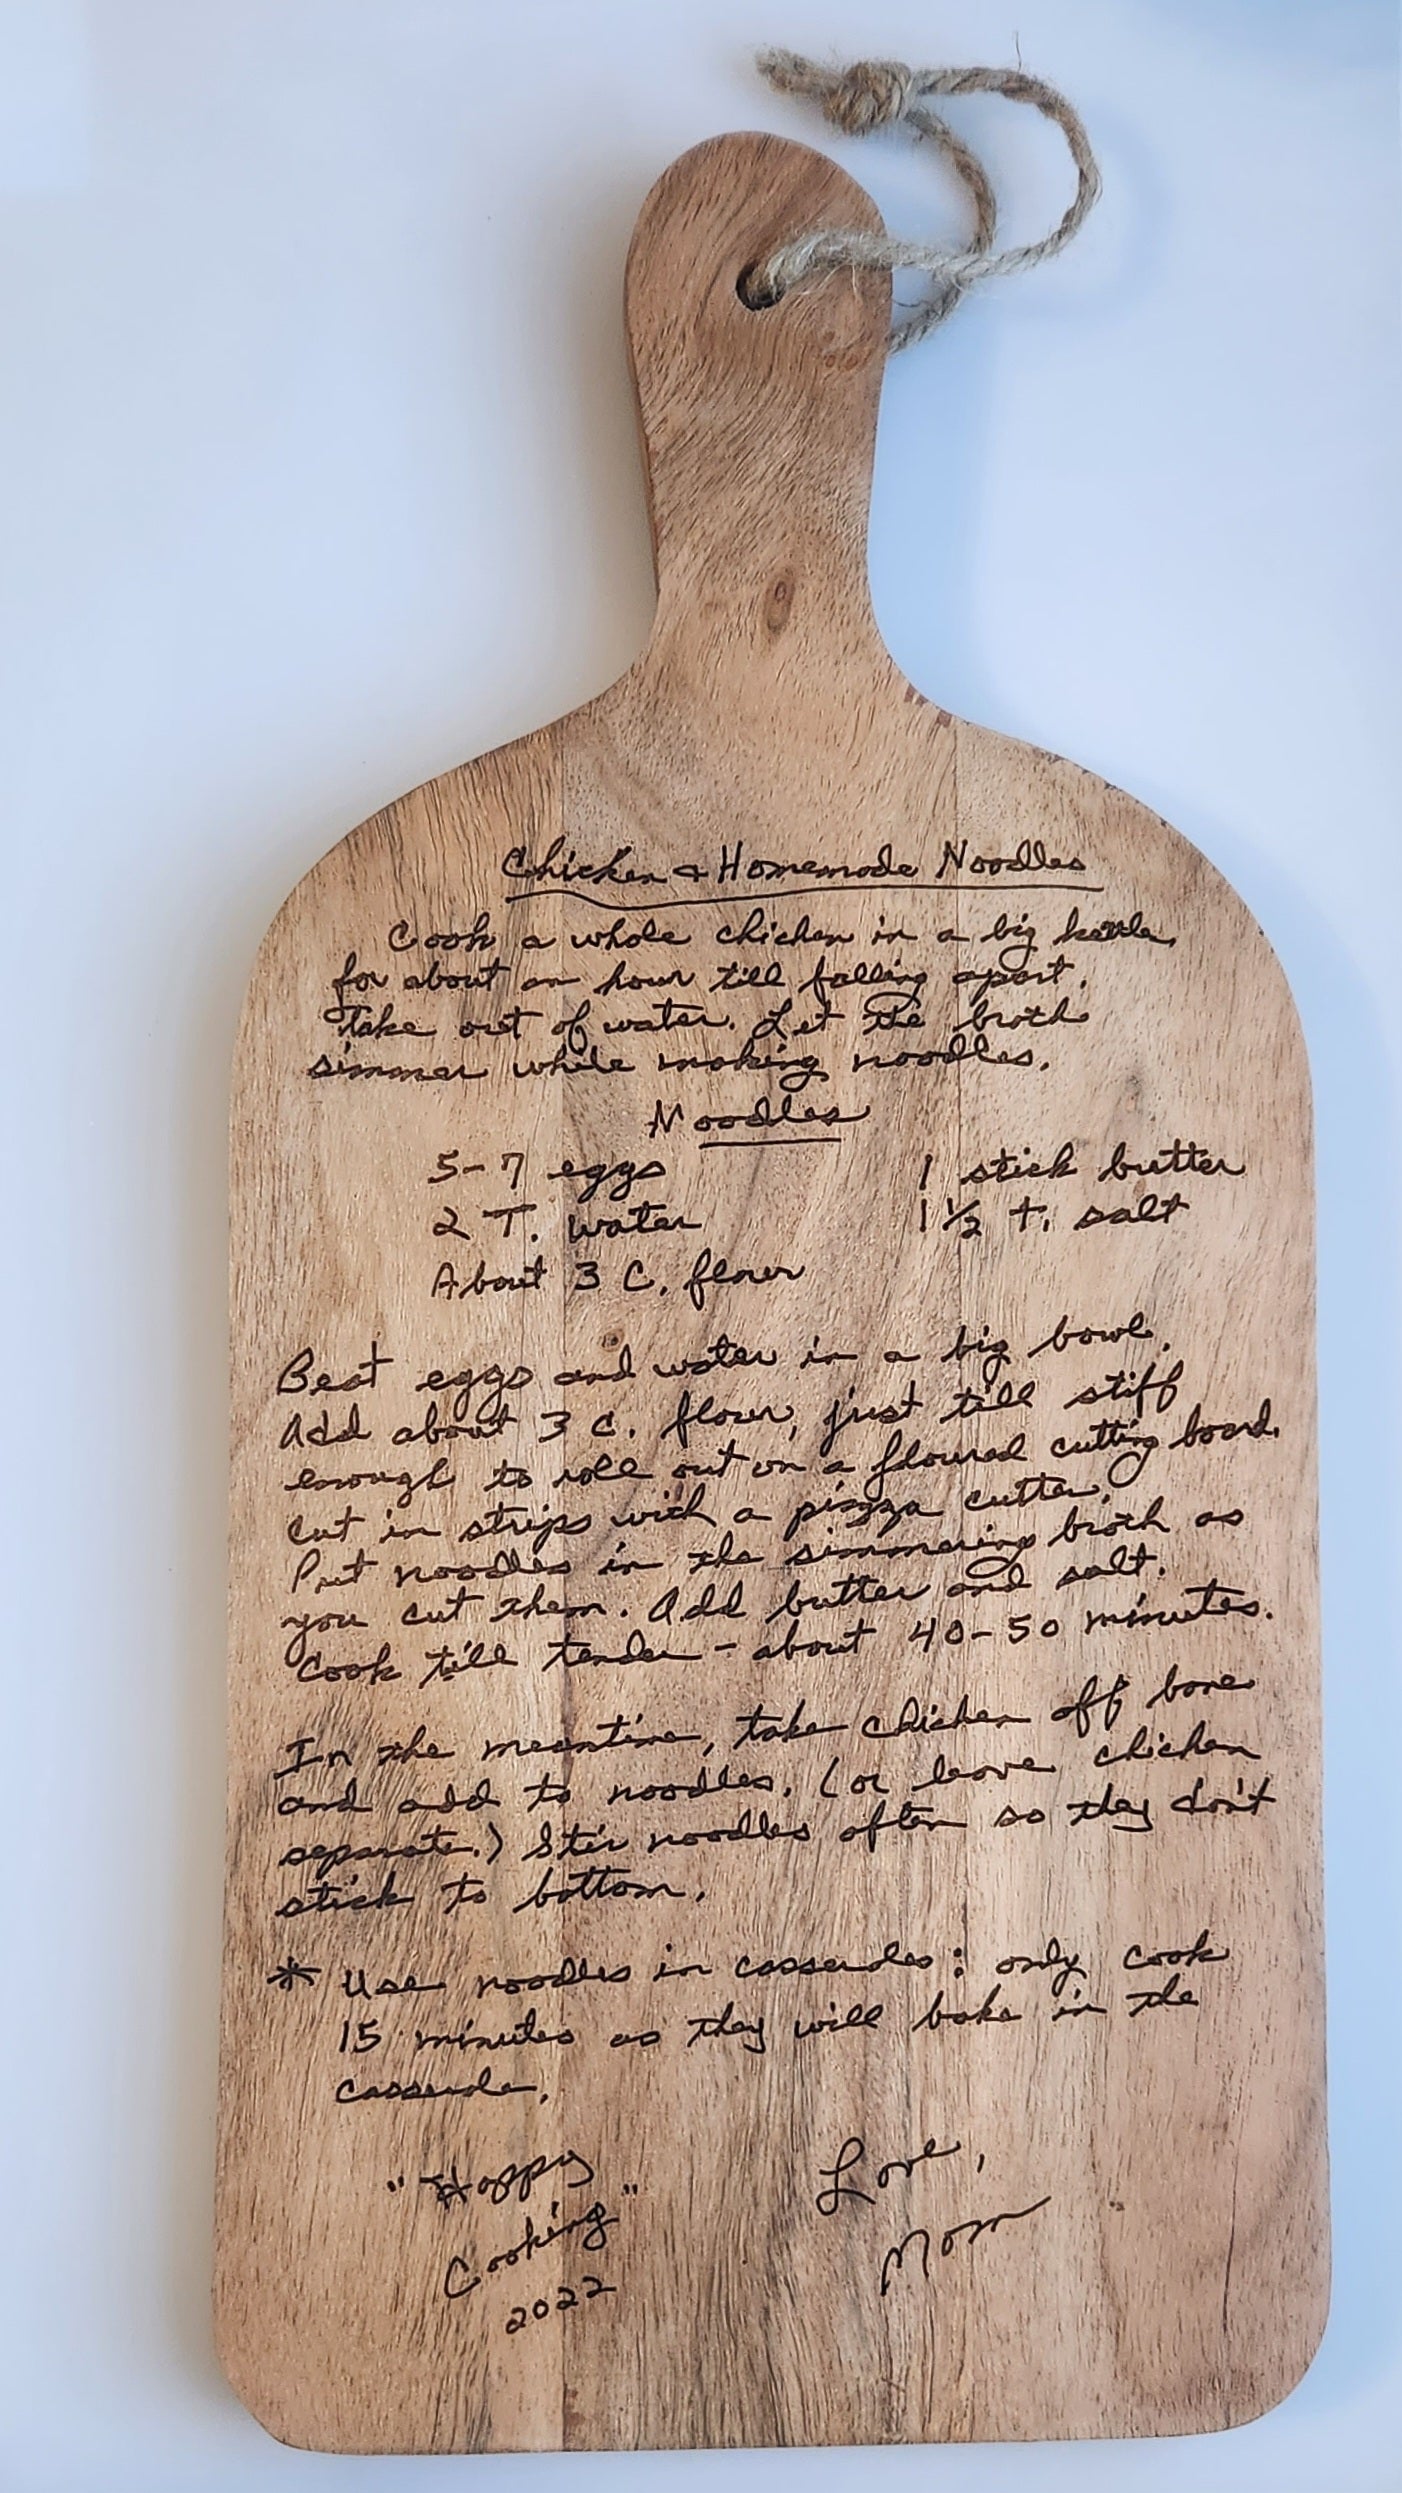 Chicken + Homemade Noodles
Cook a whole chicken in a big kettle,
for about an hour till falling apart.
Take out of water. Let the broth
simmer while making noodles.
Noodles
5-7 eggs 1 stick butter
2 T. water 1 1/2 t. salt
About 3 C. flour
Beat eggs and water in a big bowl.
Add about 3 c. flour, just till stiff
enough to roll out on a floured cutting board.
Cut in strips with a pizza cutter.
Put noodles in the simmering broth as
you cut them. Add butter and salt.
Cook till tender - about 40-50 minutes.
In the meantime, take chicken off bone
and add to noodles. (or leave chicken
separate.) Stir noodles often so they don't
stick to bottom.
* Use noodles in casseroles: only cook
15 minutes as they will bake in the
casserole.
"Happy
Cooking"
2022
Love,
Mom